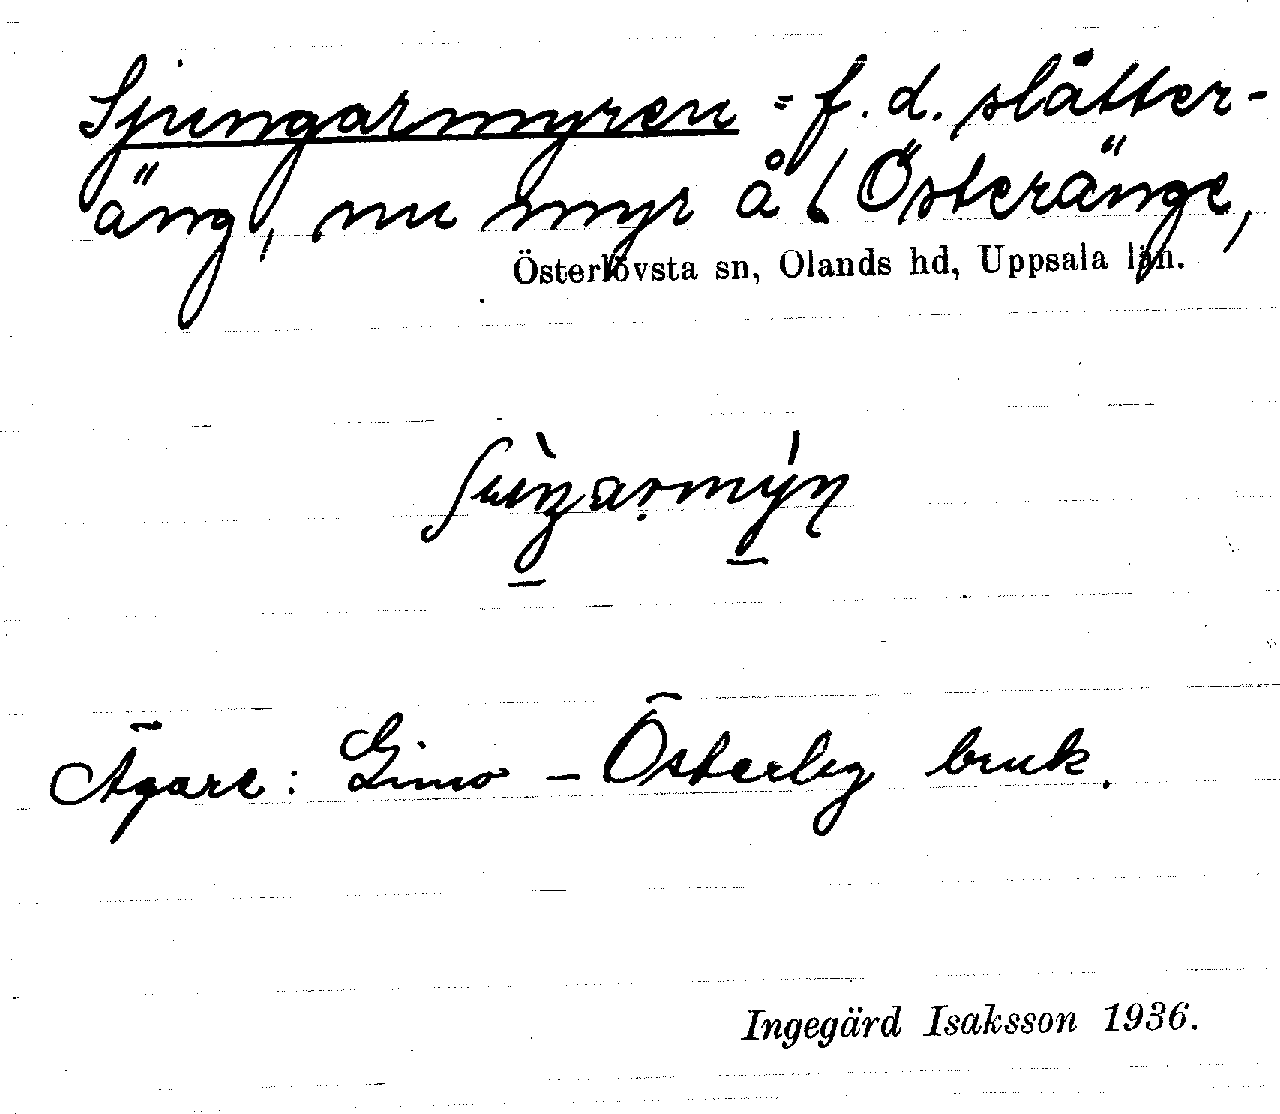 Sjungarmyren = f. d. slåtter-
äng, nu myr å Österänge,
Österlövsta sn, Olands hd, Uppsala län.
Ägare: Gimo - Österby bruk.
Ingegärd Isaksson 1936.